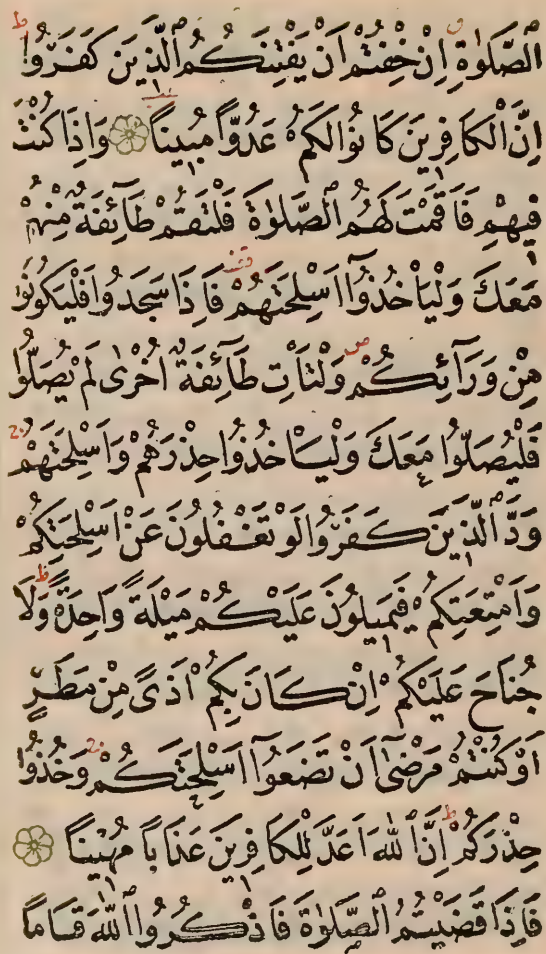 الصَّلٰوةِ اِنْ خِفْتُمْ اَنْ يَفْتِنَكُمُ الَّذِينَ كَفَرُوا ط
اِنَّ الْكَافِرِينَ كَانُوا لَكُمْ عَدُوًّا مُبِينًا وَاِذَا كُنْتَ
فِيهِمْ فَاَقَمْتَ لَهُمُ الصَّلٰوةَ فَلْتَقُمْ طَآئِفَةٌ مِنْهُمْ
مَعَكَ وَلْيَاْخُذُوٓا اَسْلِحَتَهُمْ فَاِذَا سَجَدُوا فَلْيَكُونُوا
مِنْ وَرَآئِكُمْ ص وَلْتَاْتِ طَآئِفَةٌ اُخْرٰى لَمْ يُصَلُّوا
فَلْيُصَلُّوا مَعَكَ وَلْيَاْخُذُوا حِذْرَهُمْ وَاَسْلِحَتَهُمْ
وَدَّ الَّذِينَ كَفَرُوا لَوْ تَغْفُلُونَ عَنْ اَسْلِحَتِكُمْ
وَاَمْتِعَتِكُمْ فَيَمِيلُونَ عَلَيْكُمْ مَيْلَةً وَاحِدَةً ط وَلَا
جُنَاحَ عَلَيْكُمْ اِنْ كَانَ بِكُمْ اَذًى مِنْ مَطَرٍ
اَوْ كُنْتُمْ مَرْضٰٓى اَنْ تَضَعُوٓا اَسْلِحَتَكُمْ وَخُذُوا
حِذْرَكُمْ ط اِنَّ اللّٰهَ اَعَدَّ لِلْكَافِرِينَ عَذَابًا مُهِينًا
فَاِذَا قَضَيْتُمُ الصَّلٰوةَ فَاذْكُرُوا اللّٰهَ قِيَامًا